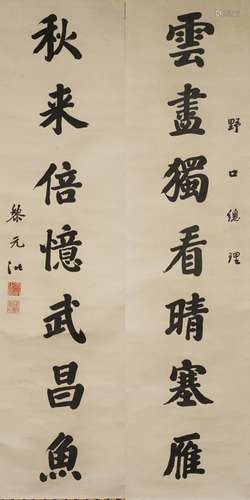 野口總理
雲盡獨看晴塞雁
秋来倍憶武昌魚
黎元洪